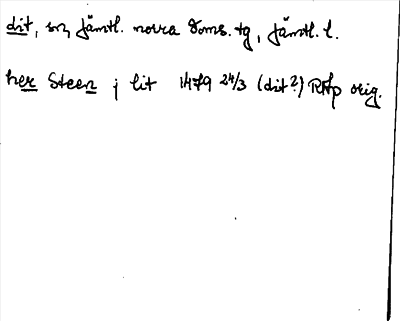 dit, sn, Jämtl. norra doms. tg, Jämtl. l.
her Steen j lit 1479 24/3 (dit?) RAp orig.